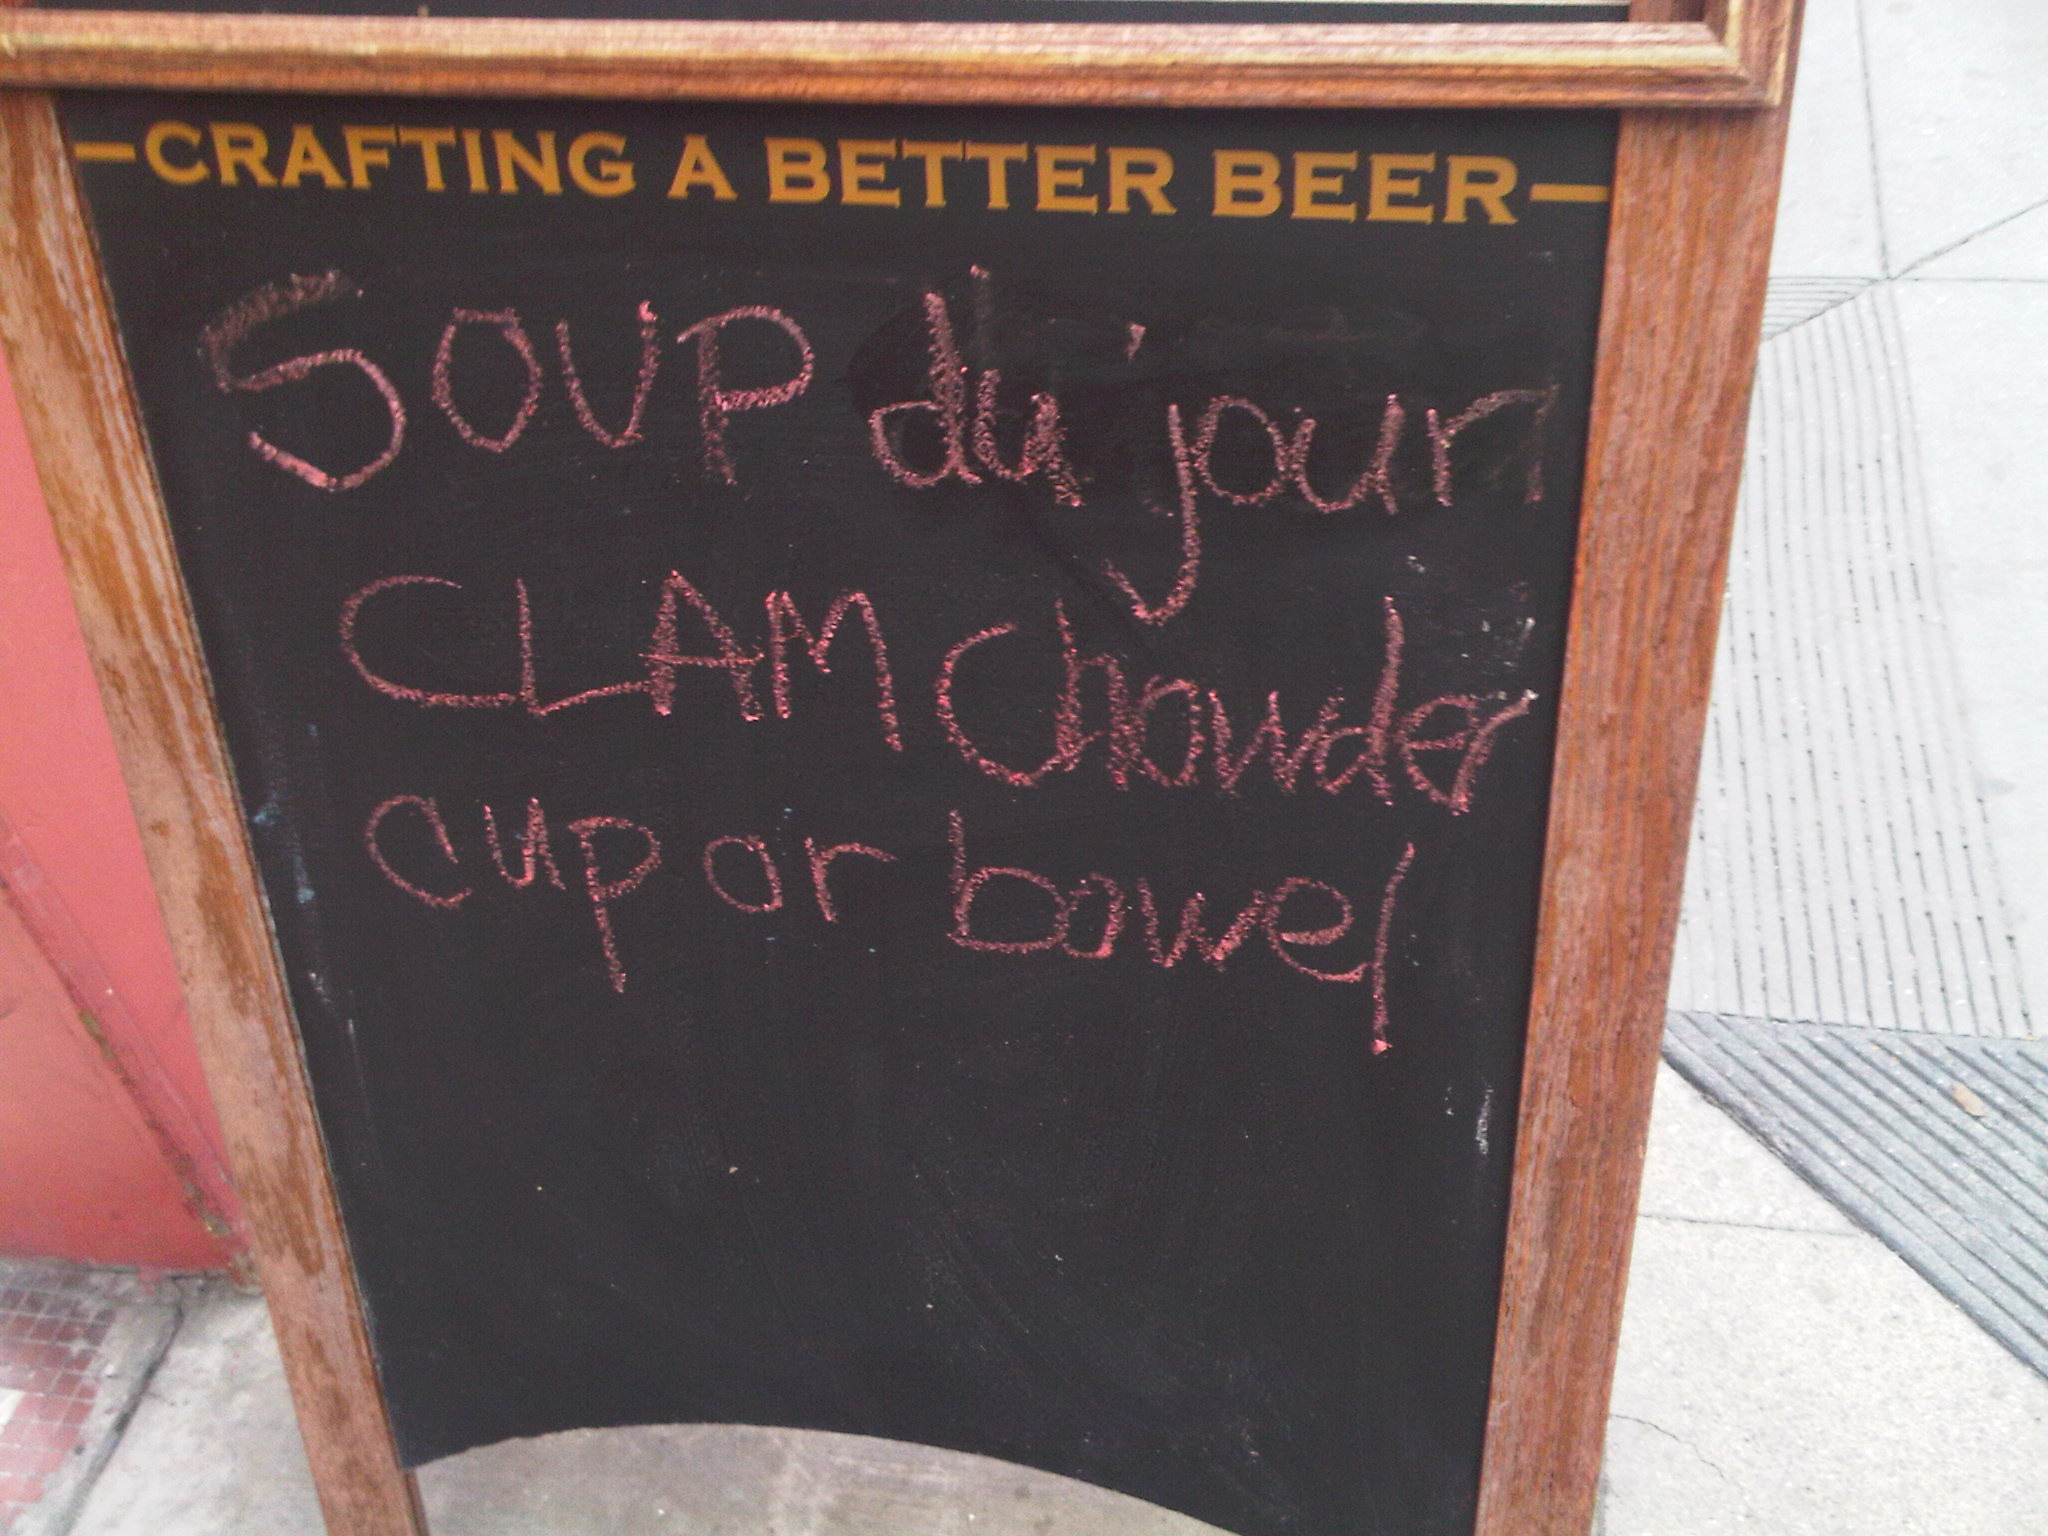 —CRAFTING A BETTER BEER—
SOUP du' jour
CLAM Chowder
cup or bowel